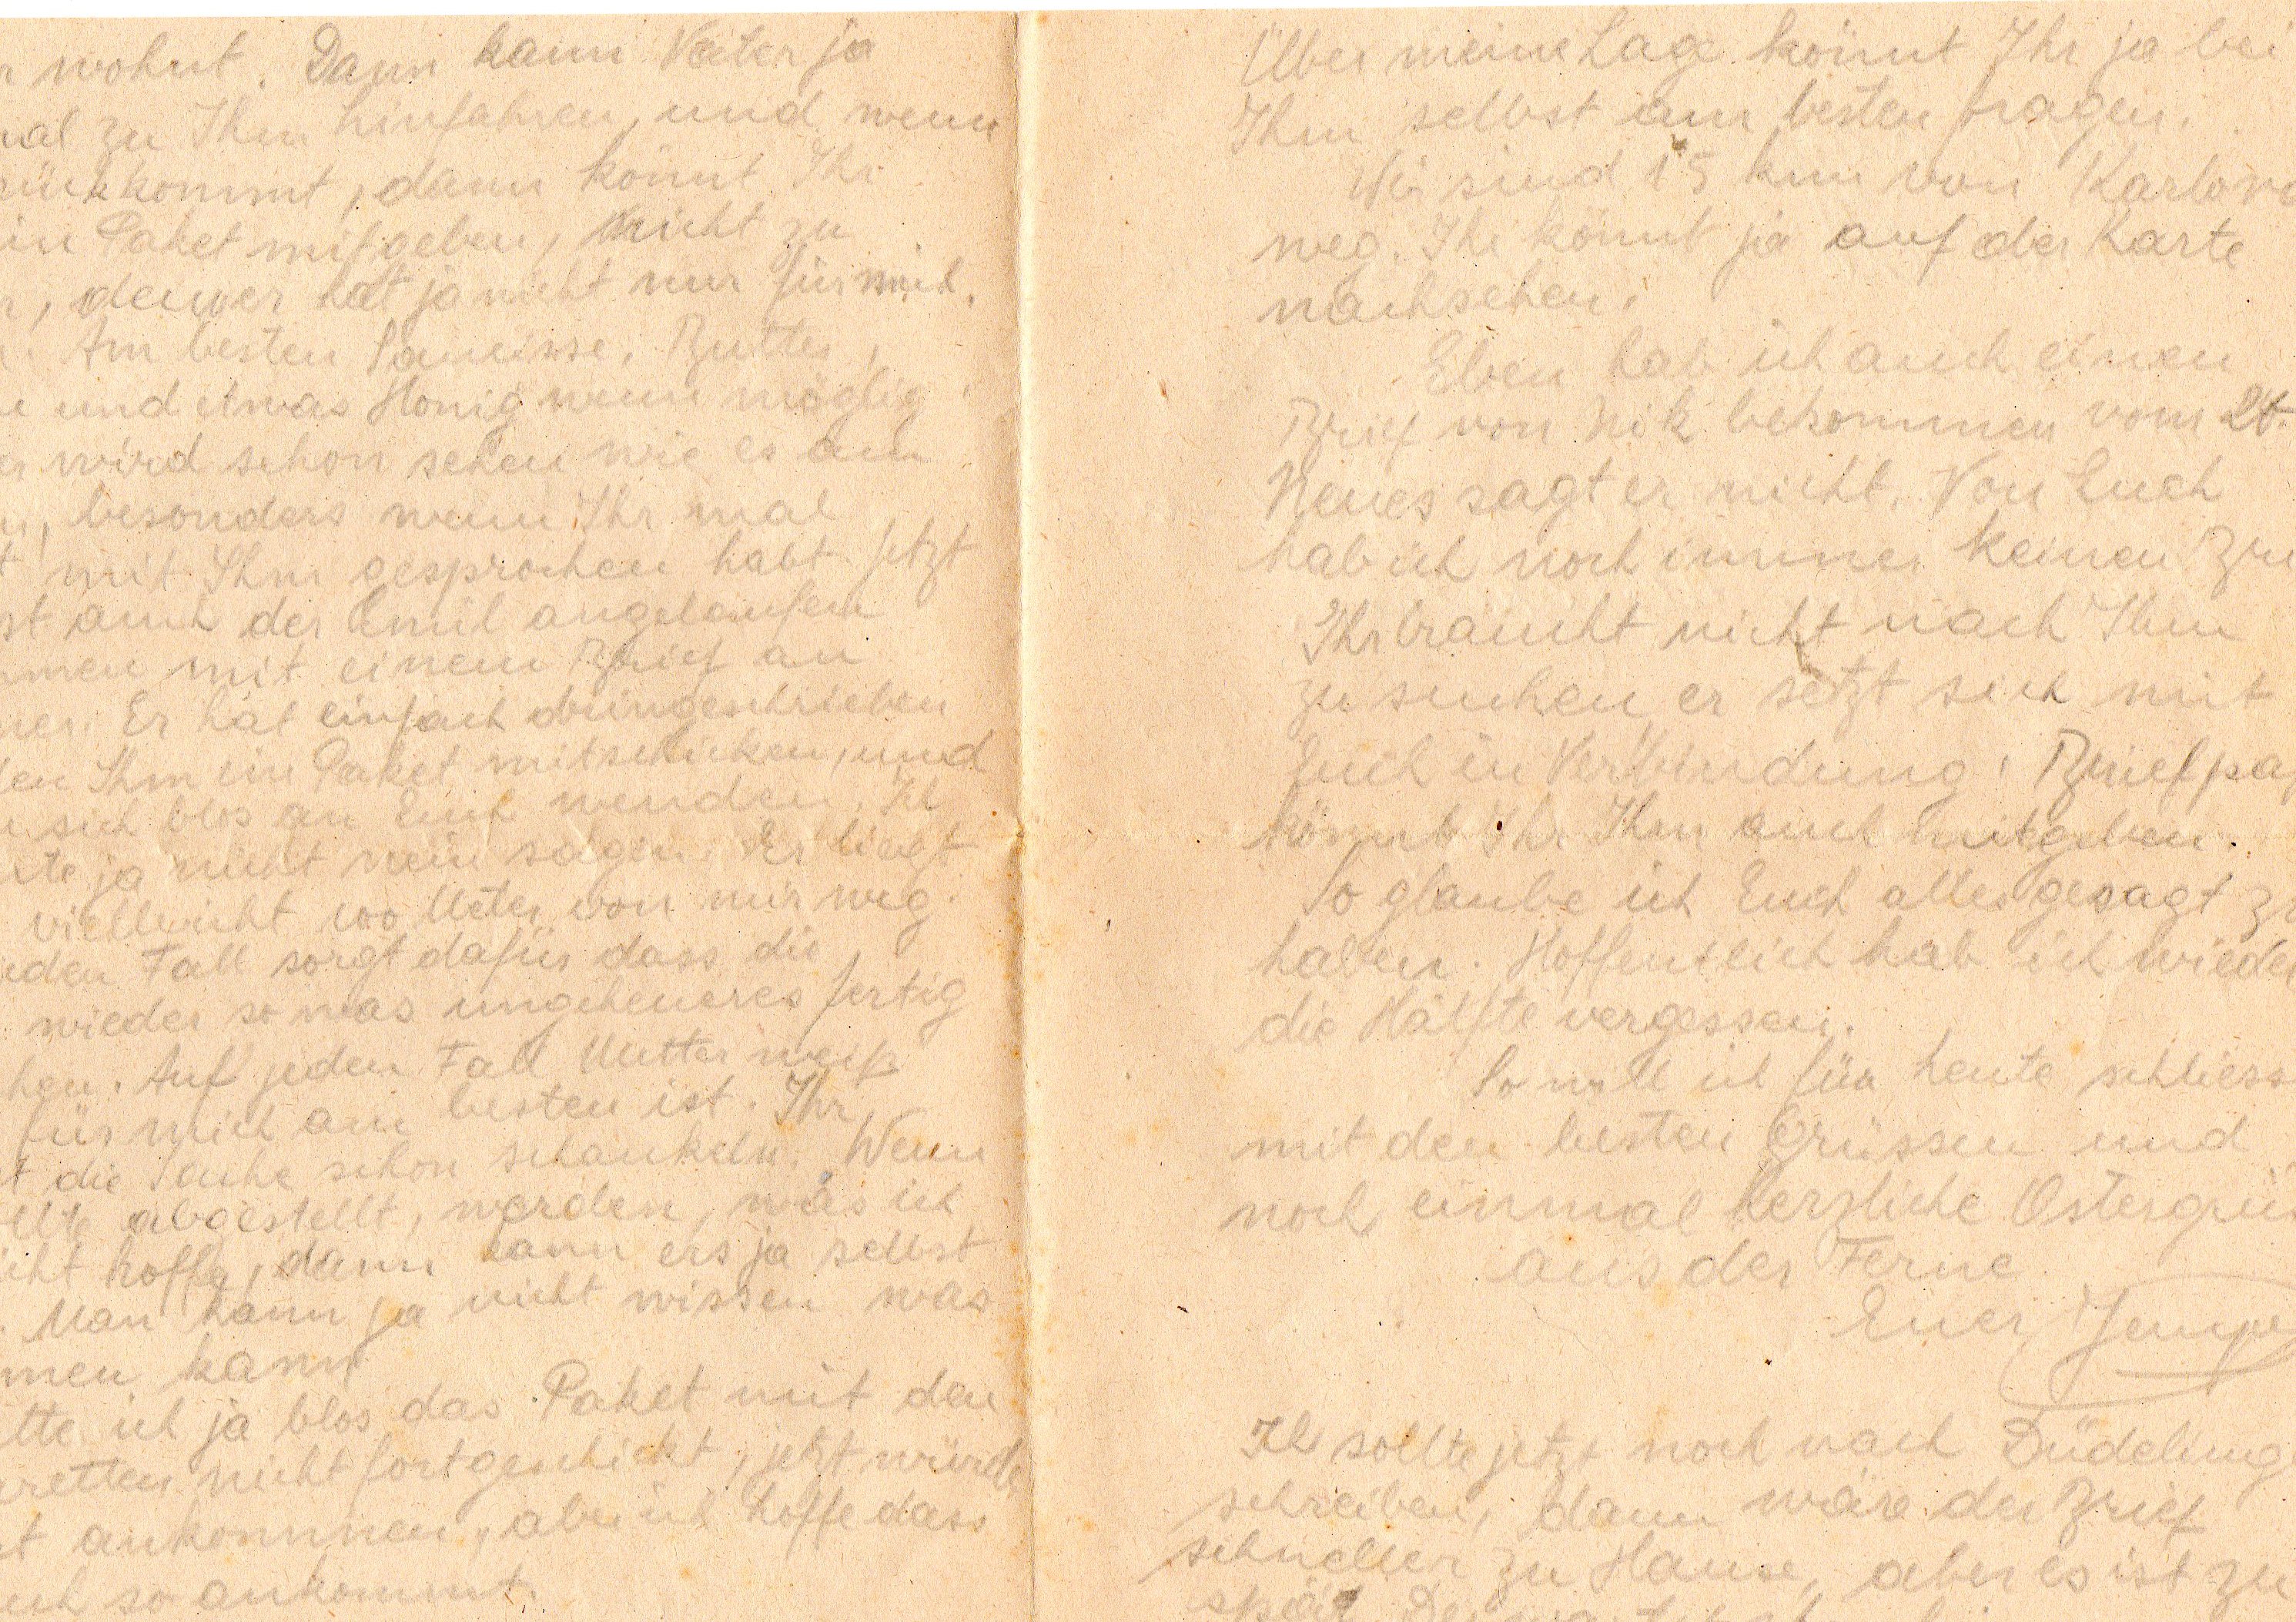 wohnt. Dann kann Vater ja
mal zu Ihm hinfahren, und wenn
rückkommt, dann könnt Ihr
ein Paket mitgeben, nicht zu
, denn er hat ja nicht nur für mich.
Am besten Saucisse, Butter,
und etwas Honig wenn möglig
wird schon sehen wie es am
besonders wenn Ihr mal
mit Ihm gesprochen habt. Jetzt
ist auch der Emil angelaufen
mit einem Brief an
Er hat einfach dringeschrieben
Ihm ein Paket mitschicken, und
sich blos an Euch wenden. Ich
ja nicht nein sagen. Er liegt
vielleicht 100 Meter von mir weg.
jeden Fall sorgt dafür dass die
wieder so was ungeheueres fertig
Auf jeden Fall Mutter weiß
für mich am besten ist. Ihr
die Sache schon schaukeln. Wenn
abgestellt, werden, was ich
nicht hoffe, dann kann ers ja selbst
Man kann ja nicht wissen was
kann
ich ja blos das Paket mit den
nicht fortgeschickt, jetzt würde
ankommen, aber ich hoffe dass
so ankommt.
Über meine Lage könnt Ihr ja bei
Ihm selbst am besten fragen.
Wir sind 15 km von Karlova
weg. Ihr könnt ja auf der Karte
nachsehen.
Eben hab ich auch einen
Brief von Nik bekommen vom
Neues sagt er nicht. Von Euch
hab ich noch immer keinen Bri
Ihr braucht nicht nach Ihm
zu suchen, er setzt sich mit
Euch in Verbindung. Briefpap
könnt Ihr Ihm auch mitgeben.
So glaube ich Euch alles gesagt zu
haben. Hoffentlich hab ich wieder
die Hälfte vergessen.
So will ich für heute schliess
mit den besten Grüssen und
noch einmal herzliche Ostergrüs
aus der Ferne
Euer Jempy
Ich sollte jetzt noch nach Düdelinge
schreiben, dann wäre der Brief
schneller zu Hause, aber es ist zu
spät.